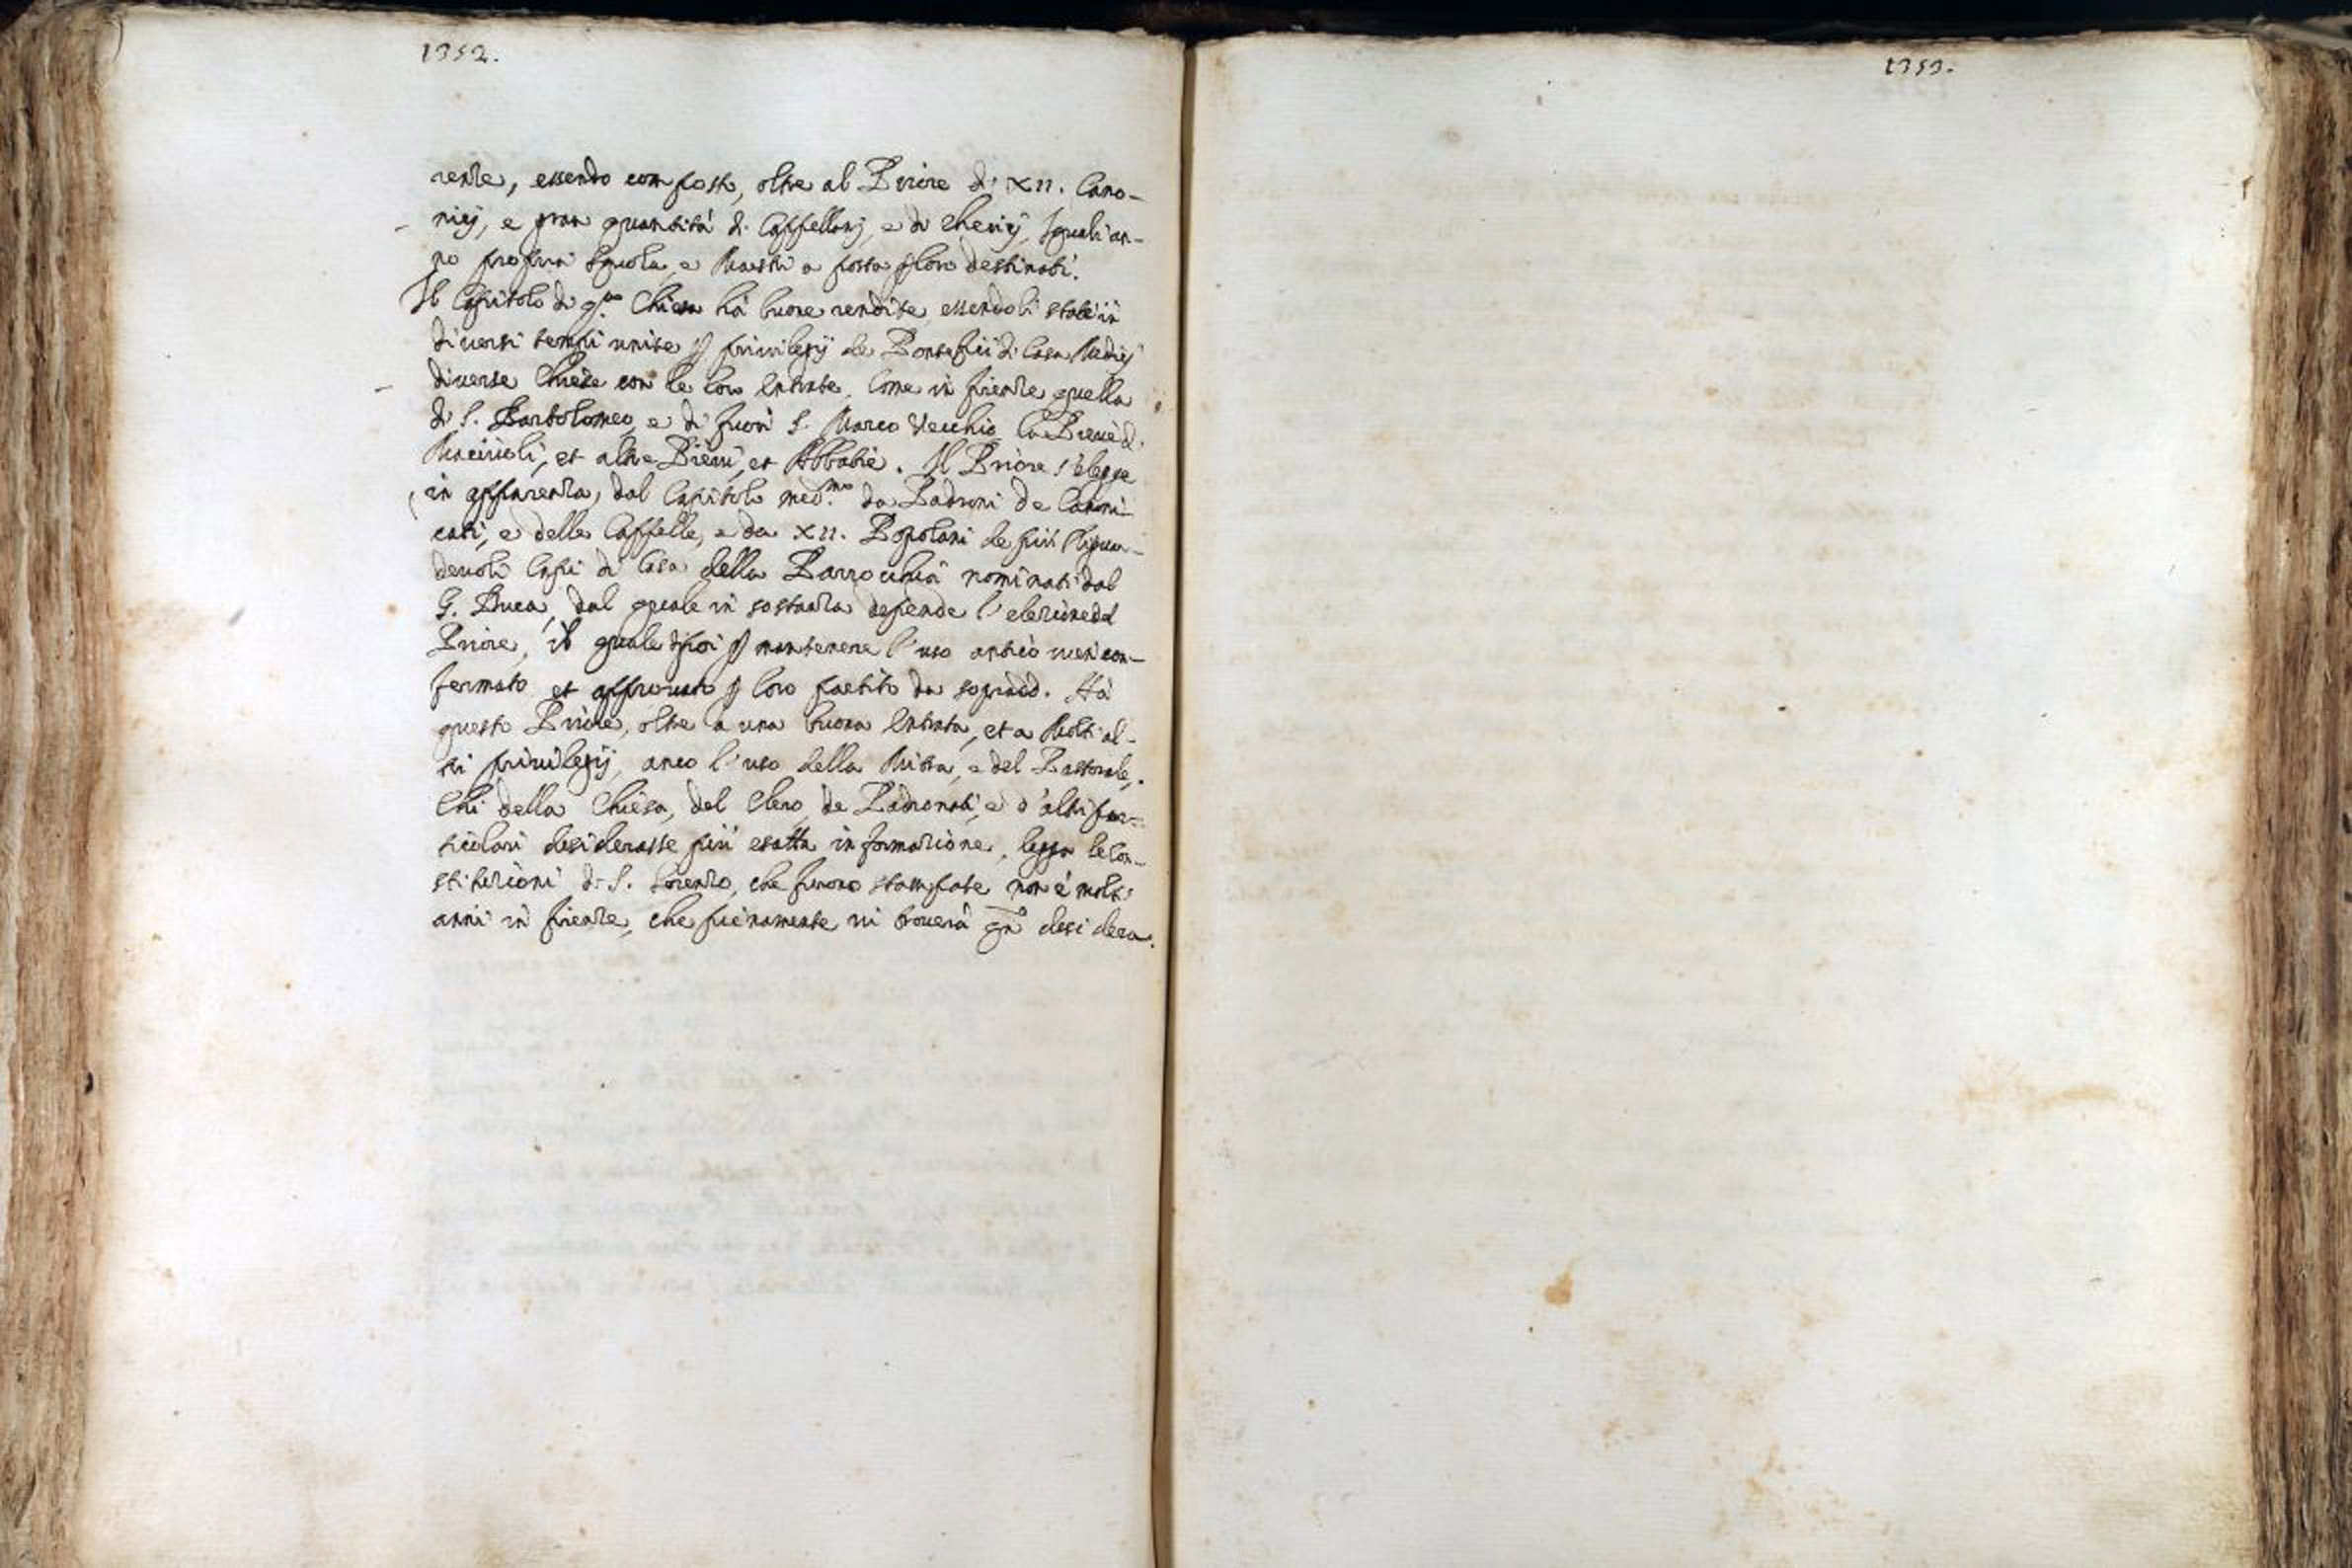 1352.
renze, essendo composto, oltre al Priore di XII. Cano-
nicj, e gran quantità di Cappellanj, e di Chericj, i quali an-
no propria scuola, e Maestri a posta p loro destinati.
Il Capitolo di q.ta Chiesa hà buone rendite, essendoli state in
diuersi tempi unite p priuilegij de Pontefici di Casa Medicj
diuerse Chiese con le loro Entrate, Come in firenze quella
di S. Bartolomeo, e di fuori S. Marco Vecchio, la Pieue di
Macciuoli, et altre Pieui, et Abbatie. Il Priore s'elegge
in apparenza, dal Capitolo med.mo da Padroni de Canoni-
cati, e delle Cappelle, e da XII. Popolani de più Riguar-
deuoli Capi di Casa della Parrochia nominati dal
G. Duca, dal quale in sostanza depende l'elezione del
Priore, il quale dipoi p mantenere l'uso antico uien con-
fermato et approuato p loro partito da sopradd. Hà
questo Priore, oltre a una buona Entrata, et a Molti al-
tri priuilegij, anco l'uso della Mitra, e del Pastorale,.
Chi della Chiesa, del Clero, de Padronati, e d'altri par-
ticolari desiderasse più esatta informazione, legga le Con-
stituzioni di S. Lorenzo, che furono stampate non è molti
anni in firenze, che pienamente ui trouerà desidera.
1353.